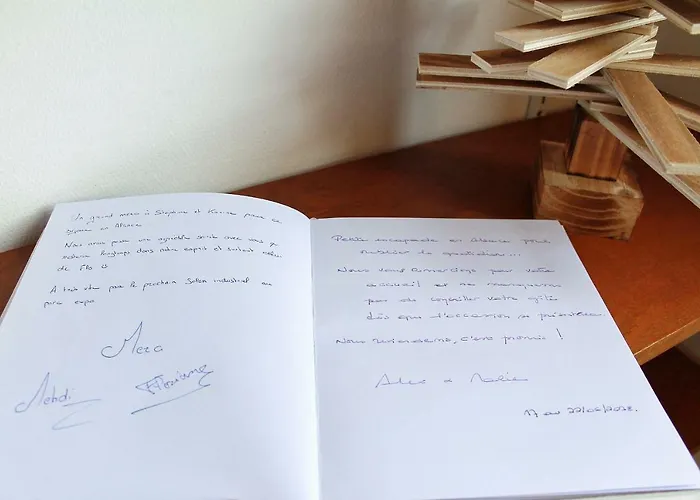 Un grand merci à Stéphane et Karine pour ce
séjour en Alsace
Nous avons passé une agréable soirée avec vous qui
restera longtemps dans notre esprit et surtout celui
de
A très vite pour le prochain Salon industriel au
parc expo
Merci
Mehdi
Floriane
Petite escapade en Alsace pour
oublier le quotidien...
Nous vous remercions pour votre
accueil et ne manquerons
pas de conseiller votre gîte
dès que l'occasion se présentera.
Nous reviendrons, c'est promis !
17 au 22/